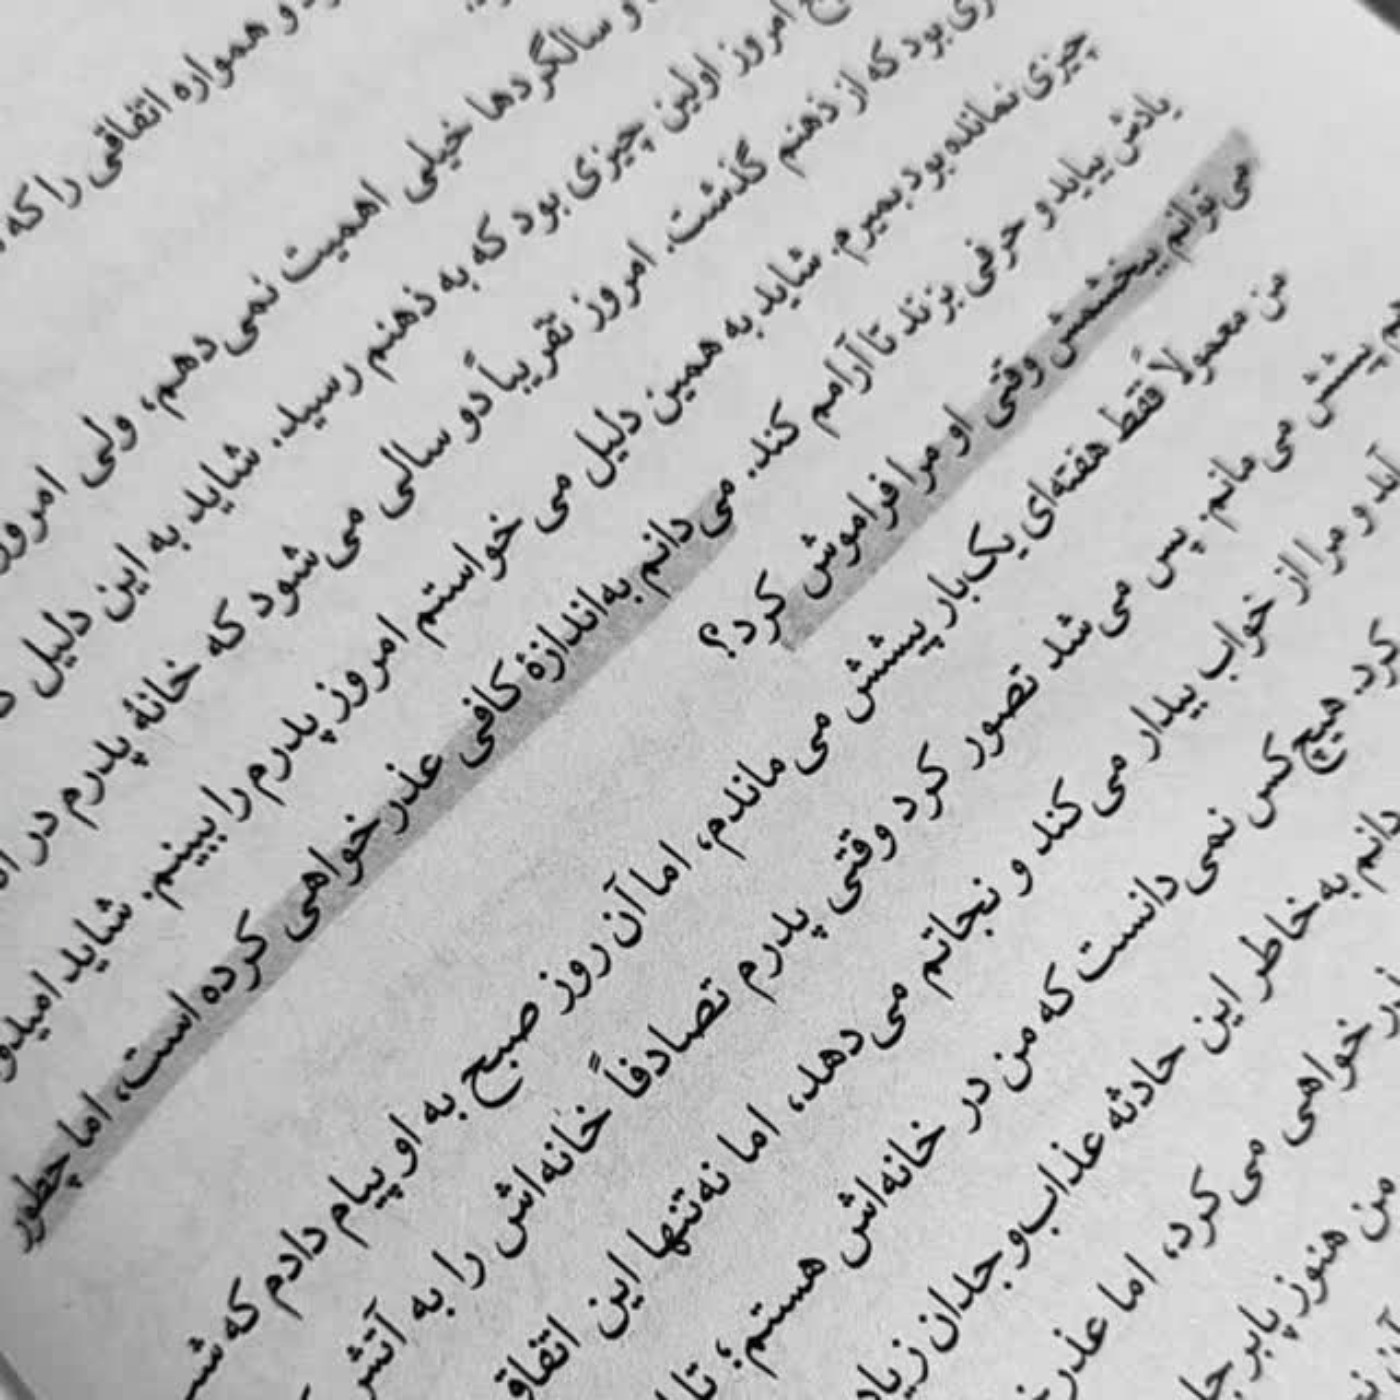 و همواره اتفاقی را که
و سالگردها خیلی اهمیت نمی‌دهم، ولی امروز
امروز اولین چیزی بود که به ذهنم رسید. شاید به این دلیل
بود که از ذهنم گذشت. امروز تقریباً دو سالی می‌شود که خانهٔ پدرم در
چیزی نمانده بود بمیرم. شاید به همین دلیل می‌خواستم امروز پدرم را ببینم. شاید
یادش بیاید و حرفی بزند تا آرامم کند. می‌دانم به‌اندازهٔ کافی عذرخواهی کرده است، اما چطور
می‌توانم ببخشمش وقتی او مرا فراموش کرد؟
من معمولاً فقط هفته‌ای یک‌بار پیشش می‌ماندم، اما آن روز صبح به او پیام دادم که
پیشش می‌مانم. پس می‌شد تصور کرد وقتی پدرم تصادفاً خانه‌اش را به آتش
و مرا از خواب بیدار می‌کند و نجاتم می‌دهد، اما نه‌تنها این اتفاق
کرد. هیچ‌کس نمی‌دانست که من در خانه‌اش هستم؛ تا
به خاطر این حادثه عذاب‌وجدان
خواهی می‌کرد، اما
من هنوز پابرجا